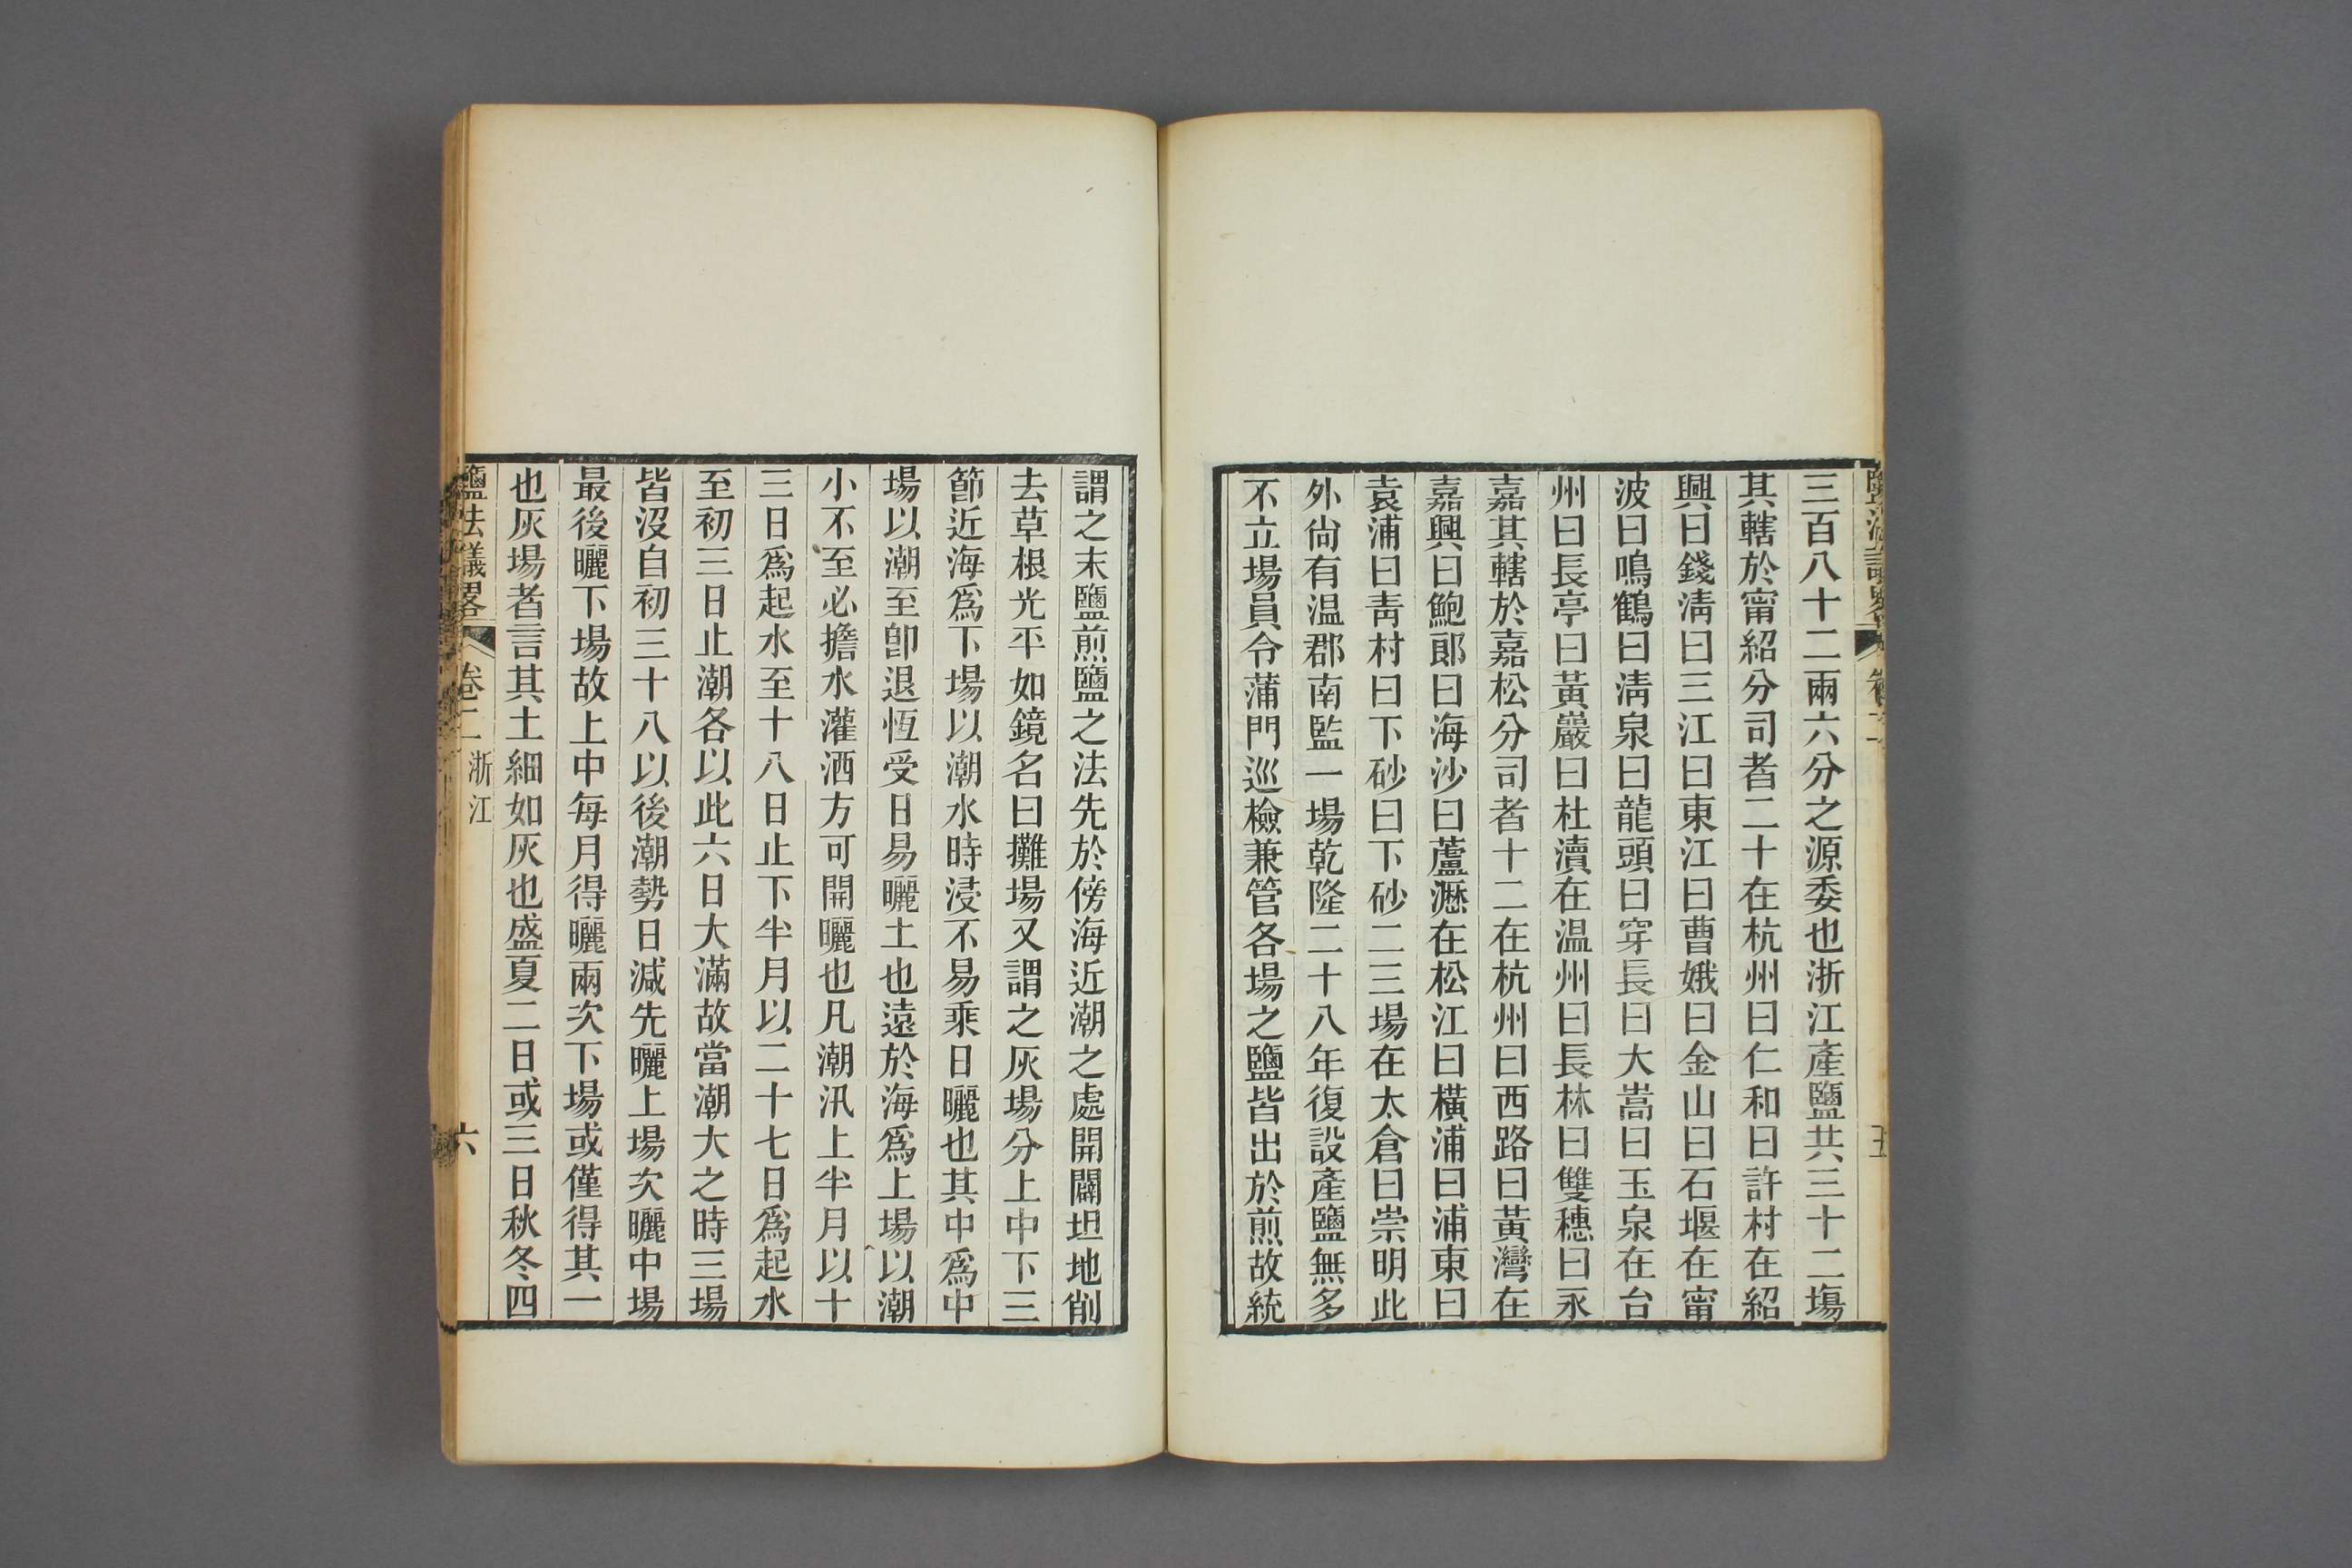 三百八十二兩六分之源委也浙江產鹽共三十二塲
其轄於甯紹分司者二十在杭州曰仁和曰許村在紹
興曰錢淸曰三江曰東江曰曹娥曰金山曰石堰在甯
波曰鳴鶴曰淸泉曰龍頭曰穿長曰大嵩曰玉泉在台
州曰長亭曰黃巖曰杜瀆在温州曰長林曰雙穗曰永
嘉其轄於嘉松分司者十二在杭州曰西路曰黃灣在
嘉興曰鮑郞曰海沙曰蘆瀝在松江曰橫浦曰浦東曰
袁浦曰靑村曰下砂曰下砂二三場在太倉曰崇明此
外尙有温郡南監一場乾隆二十八年復設產鹽無多
不立場員令蒲門巡檢兼管各場之鹽皆出於煎故統
謂之末鹽煎鹽之法先於傍海近潮之處開闢坦地削
去草根光平如鏡名曰攤場又謂之灰場分上中下三
節近海爲下場以潮水時浸不易乘日曬也其中爲中
場以潮至卽退恆受日易曬土也遠於海爲上場以潮
小不至必擔水灌洒方可開曬也凡潮汛上半月以十
三日爲起水至十八日止下半月以二十七日爲起水
至初三日止潮各以此六日大滿故當潮大之時三場
皆沒自初三十八以後潮勢日減先曬上場次曬中場
最後曬下場故上中每月得曬兩次下場或僅得其一
也灰場者言其土細如灰也盛夏二日或三日秋冬四
鹽法議畧 卷二 浙江 六